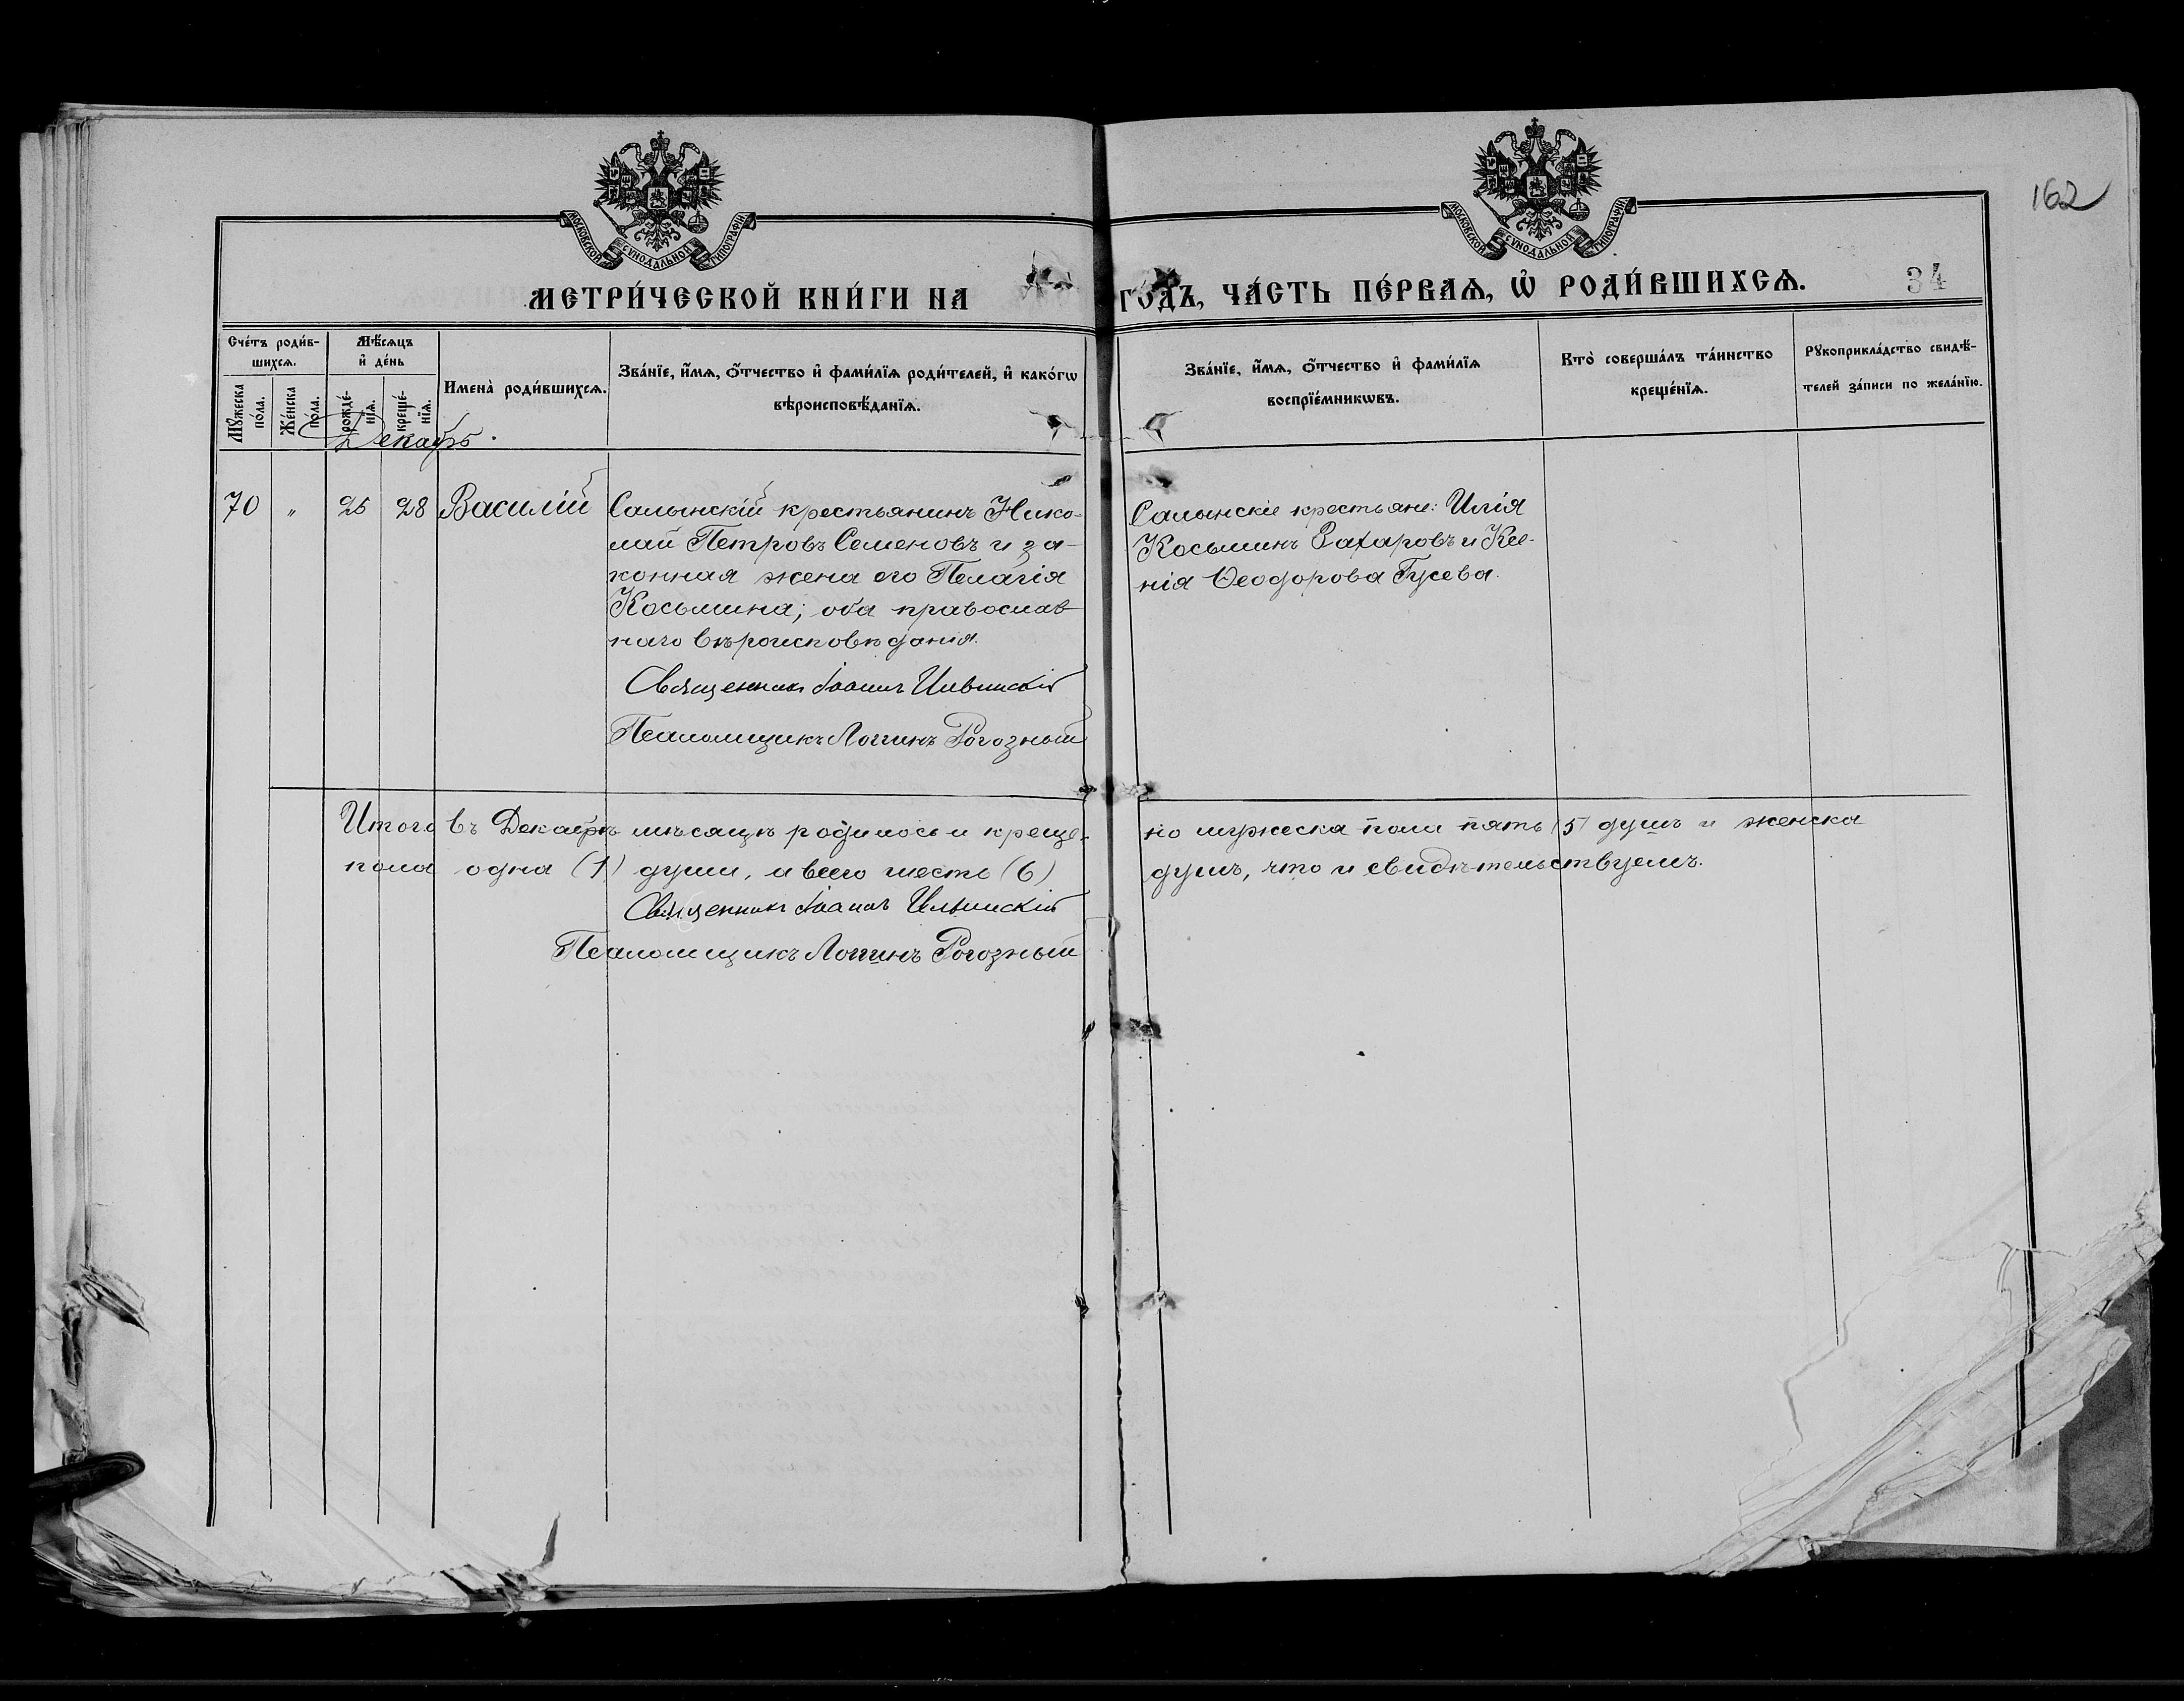 162
МОСКОВСКОЙ СѴНОДАЛЬНОЙ ТИПОГРАФІИ
МОСКОВСКОЙ СѴНОДАЛЬНОЙ ТИПОГРАФІИ
МЕТРИ́ЧЕСКОЙ КНИ́ГИ НА
ГО́ДЪ, ЧА́СТЬ ПЕ́РВАѦ, Ѡ҆ РОДИ́ВШИХСѦ.
34
Сче́тъ роди́в-
шихсѧ.
Мꙋ́жеска
по́ла.
Же́нска
по́ла.
Мѣ́сѧцъ
и҆ де́нь
рожде́-
нїѧ.
креще́-
нїѧ.
Имена̀ роди́вшихсѧ.
Зва́нїе, и҆́мѧ, ѻ҆́тчество и҆ фами́лїѧ роди́телей, и҆ како́гѡ
вѣроисповѣ́данїѧ.
Зва́нїе, и҆́мѧ, ѻ҆́тчество и҆ фами́лїѧ
воспрїе́мникѡвъ.
Кто̀ соверша́лъ та́инство
креще́нїѧ.
Рꙋкоприкла́дство свидѣ́-
телей за́писи по жела́нїю.
Декабрь.
70 " 25 28 Василій
Салынскій крестьянинъ Нико-
лай Петровъ Семеновъ и за-
конная жена его Пелагія
Косьмина; оба православ-
наго вѣроисповѣданія.
Священникъ Іоаннъ Ильинскій
Псаломщикъ Логгинъ Рогозный
Салынскіе крестьяне: Илія
Косьминъ Захаровъ и Ксе-
нія Ѳеодорова Гусева.
Итого въ Декабрѣ мѣсяцѣ родилось и креще-
но мужеска пола пять (5) душъ и женска
пола одна (1) душа, а всего шесть (6)
душъ, что и свидѣтельствуемъ.
Священникъ Іоаннъ Ильинскій
Псаломщикъ Логгинъ Рогозный